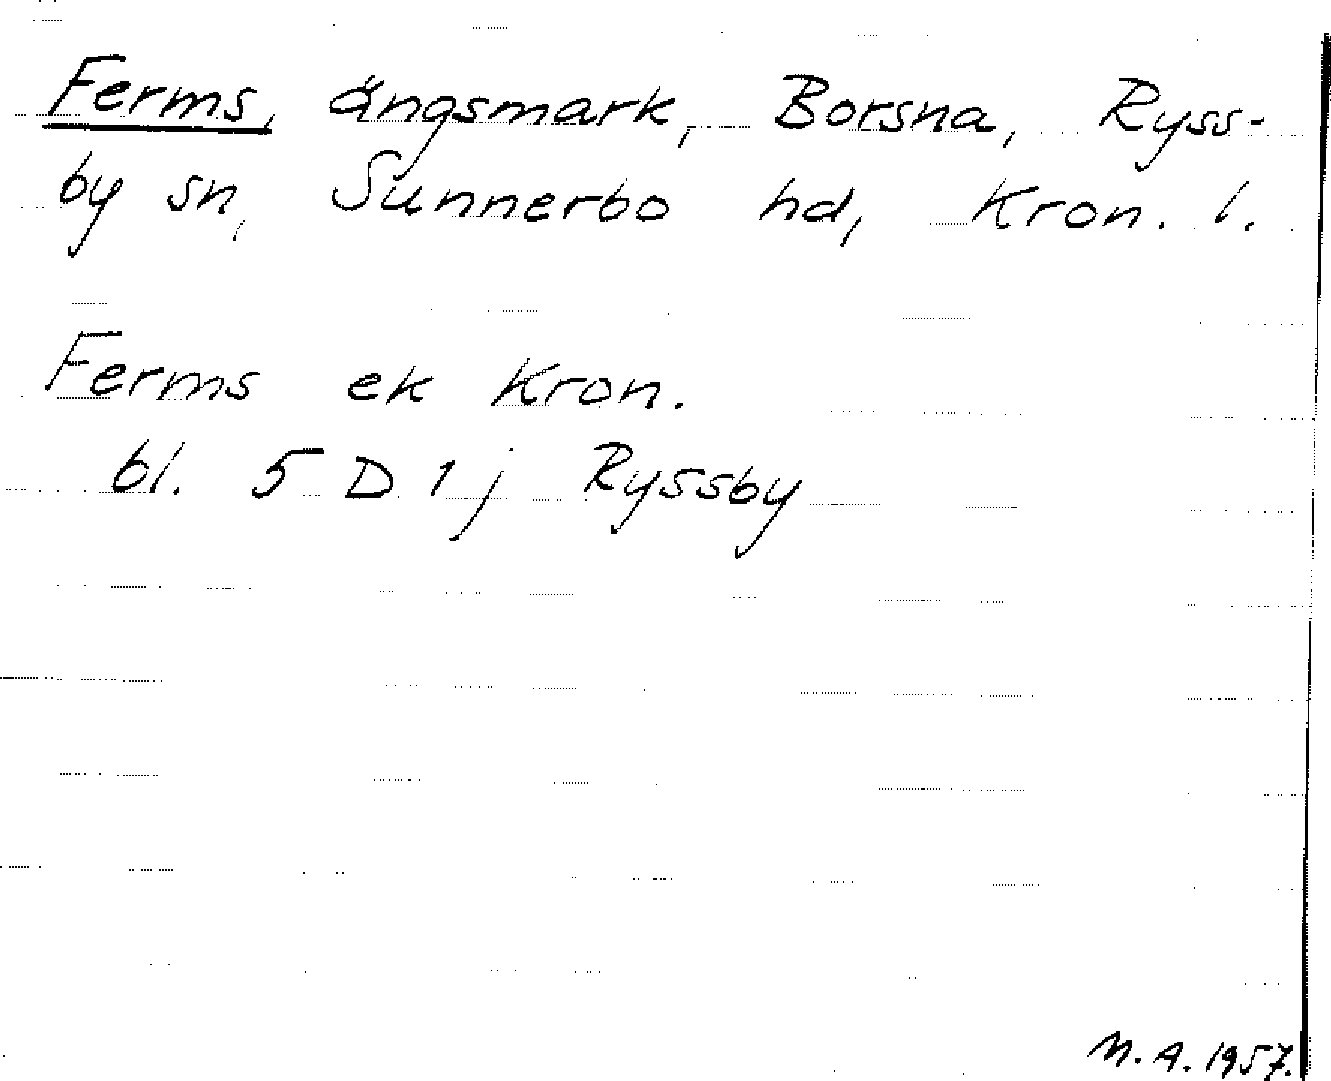 Ferms, ängsmark, Borsna, Ryss-
by sn, Sunnerbo hd, Kron. l.
Ferms ek Kron.
bl. 5 D 1 j Ryssby
M.A. 1957.